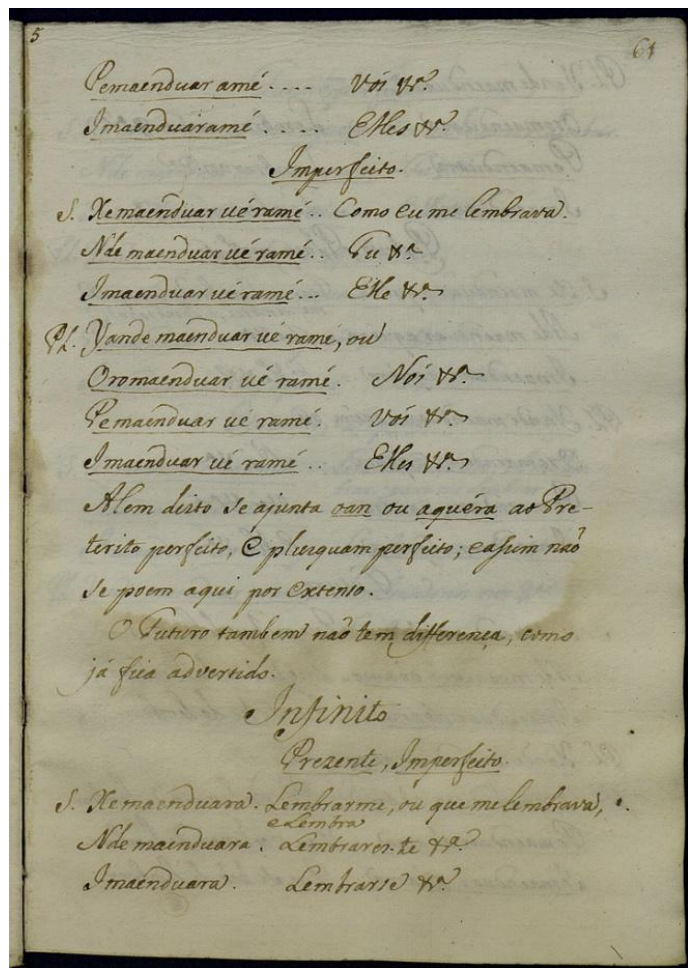 5
61
Pemaenduar amé.... Vós &ª.
Imaenduáramé..... Elles &ª.
Imperfeito.
S. Xemaenduar ué ramé.. Como eu me lembrava.
Nde maenduar ué ramé.. Tu &ª
Imaenduar ué ramé... Elle &ª
Pl. Yande maenduar ué ramé, ou
Oromaenduar ué ramé. Nós &ª.
Pemaenduar ué ramé. Vós &ª.
Imaenduar ué ramé.. Elles &ª.
Alem disto se ajunta oan ou aquéra ao Pre-
terito perfeito, e plusquam perfeito; e asim naõ
se poem aqui por extenso.
O Futuro tambem naõ tem differença, como
já fica advertido.
Infinito
Prezente, Imperfeito.
S. Xemaenduara. Lembrarme, ou que me lembrava,
e Lembra
Nde maenduara. Lembrares-te &ª.
Imaenduara. Lembrarse &ª.